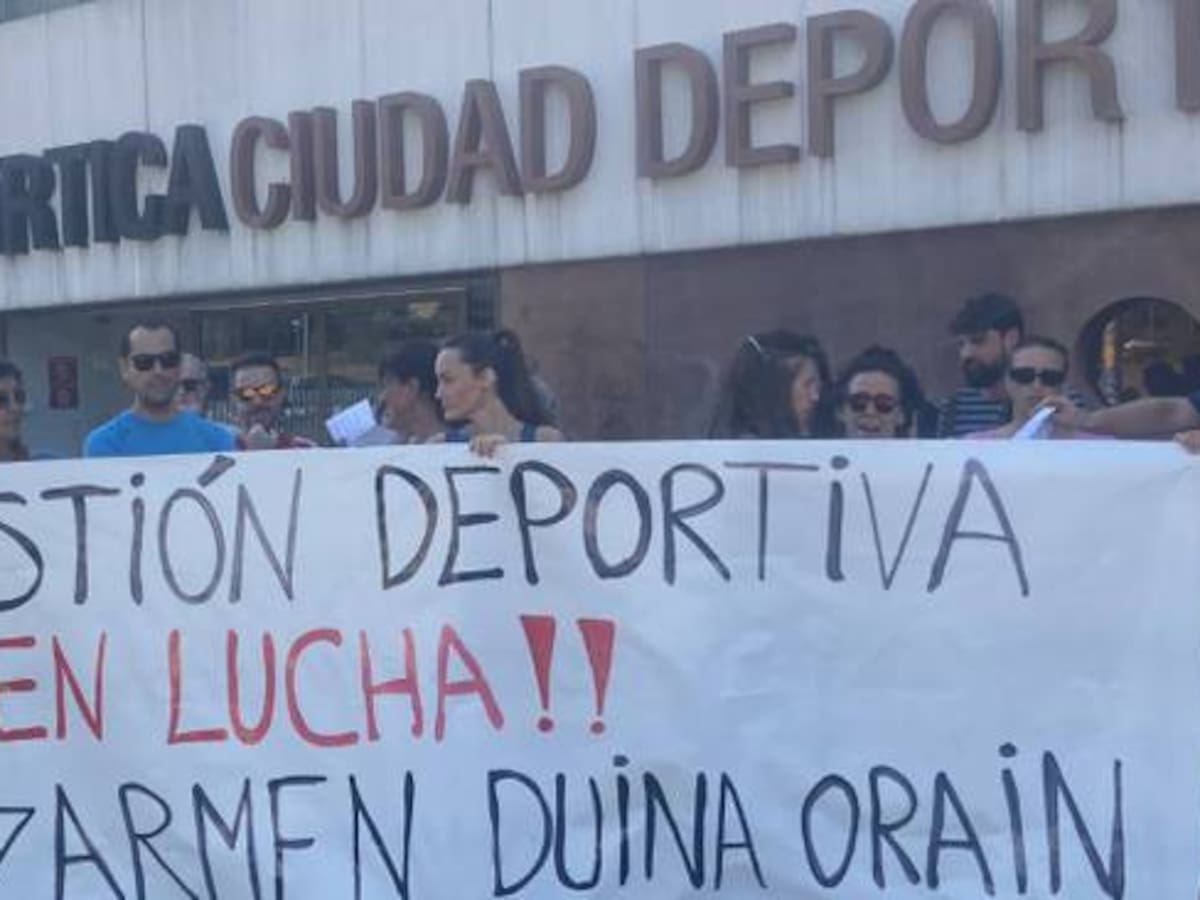 RTICA CIUDAD DEPORT
STIÓN DEPORTIVA
EN LUCHA!!
ZARMEN DUINA ORAIN